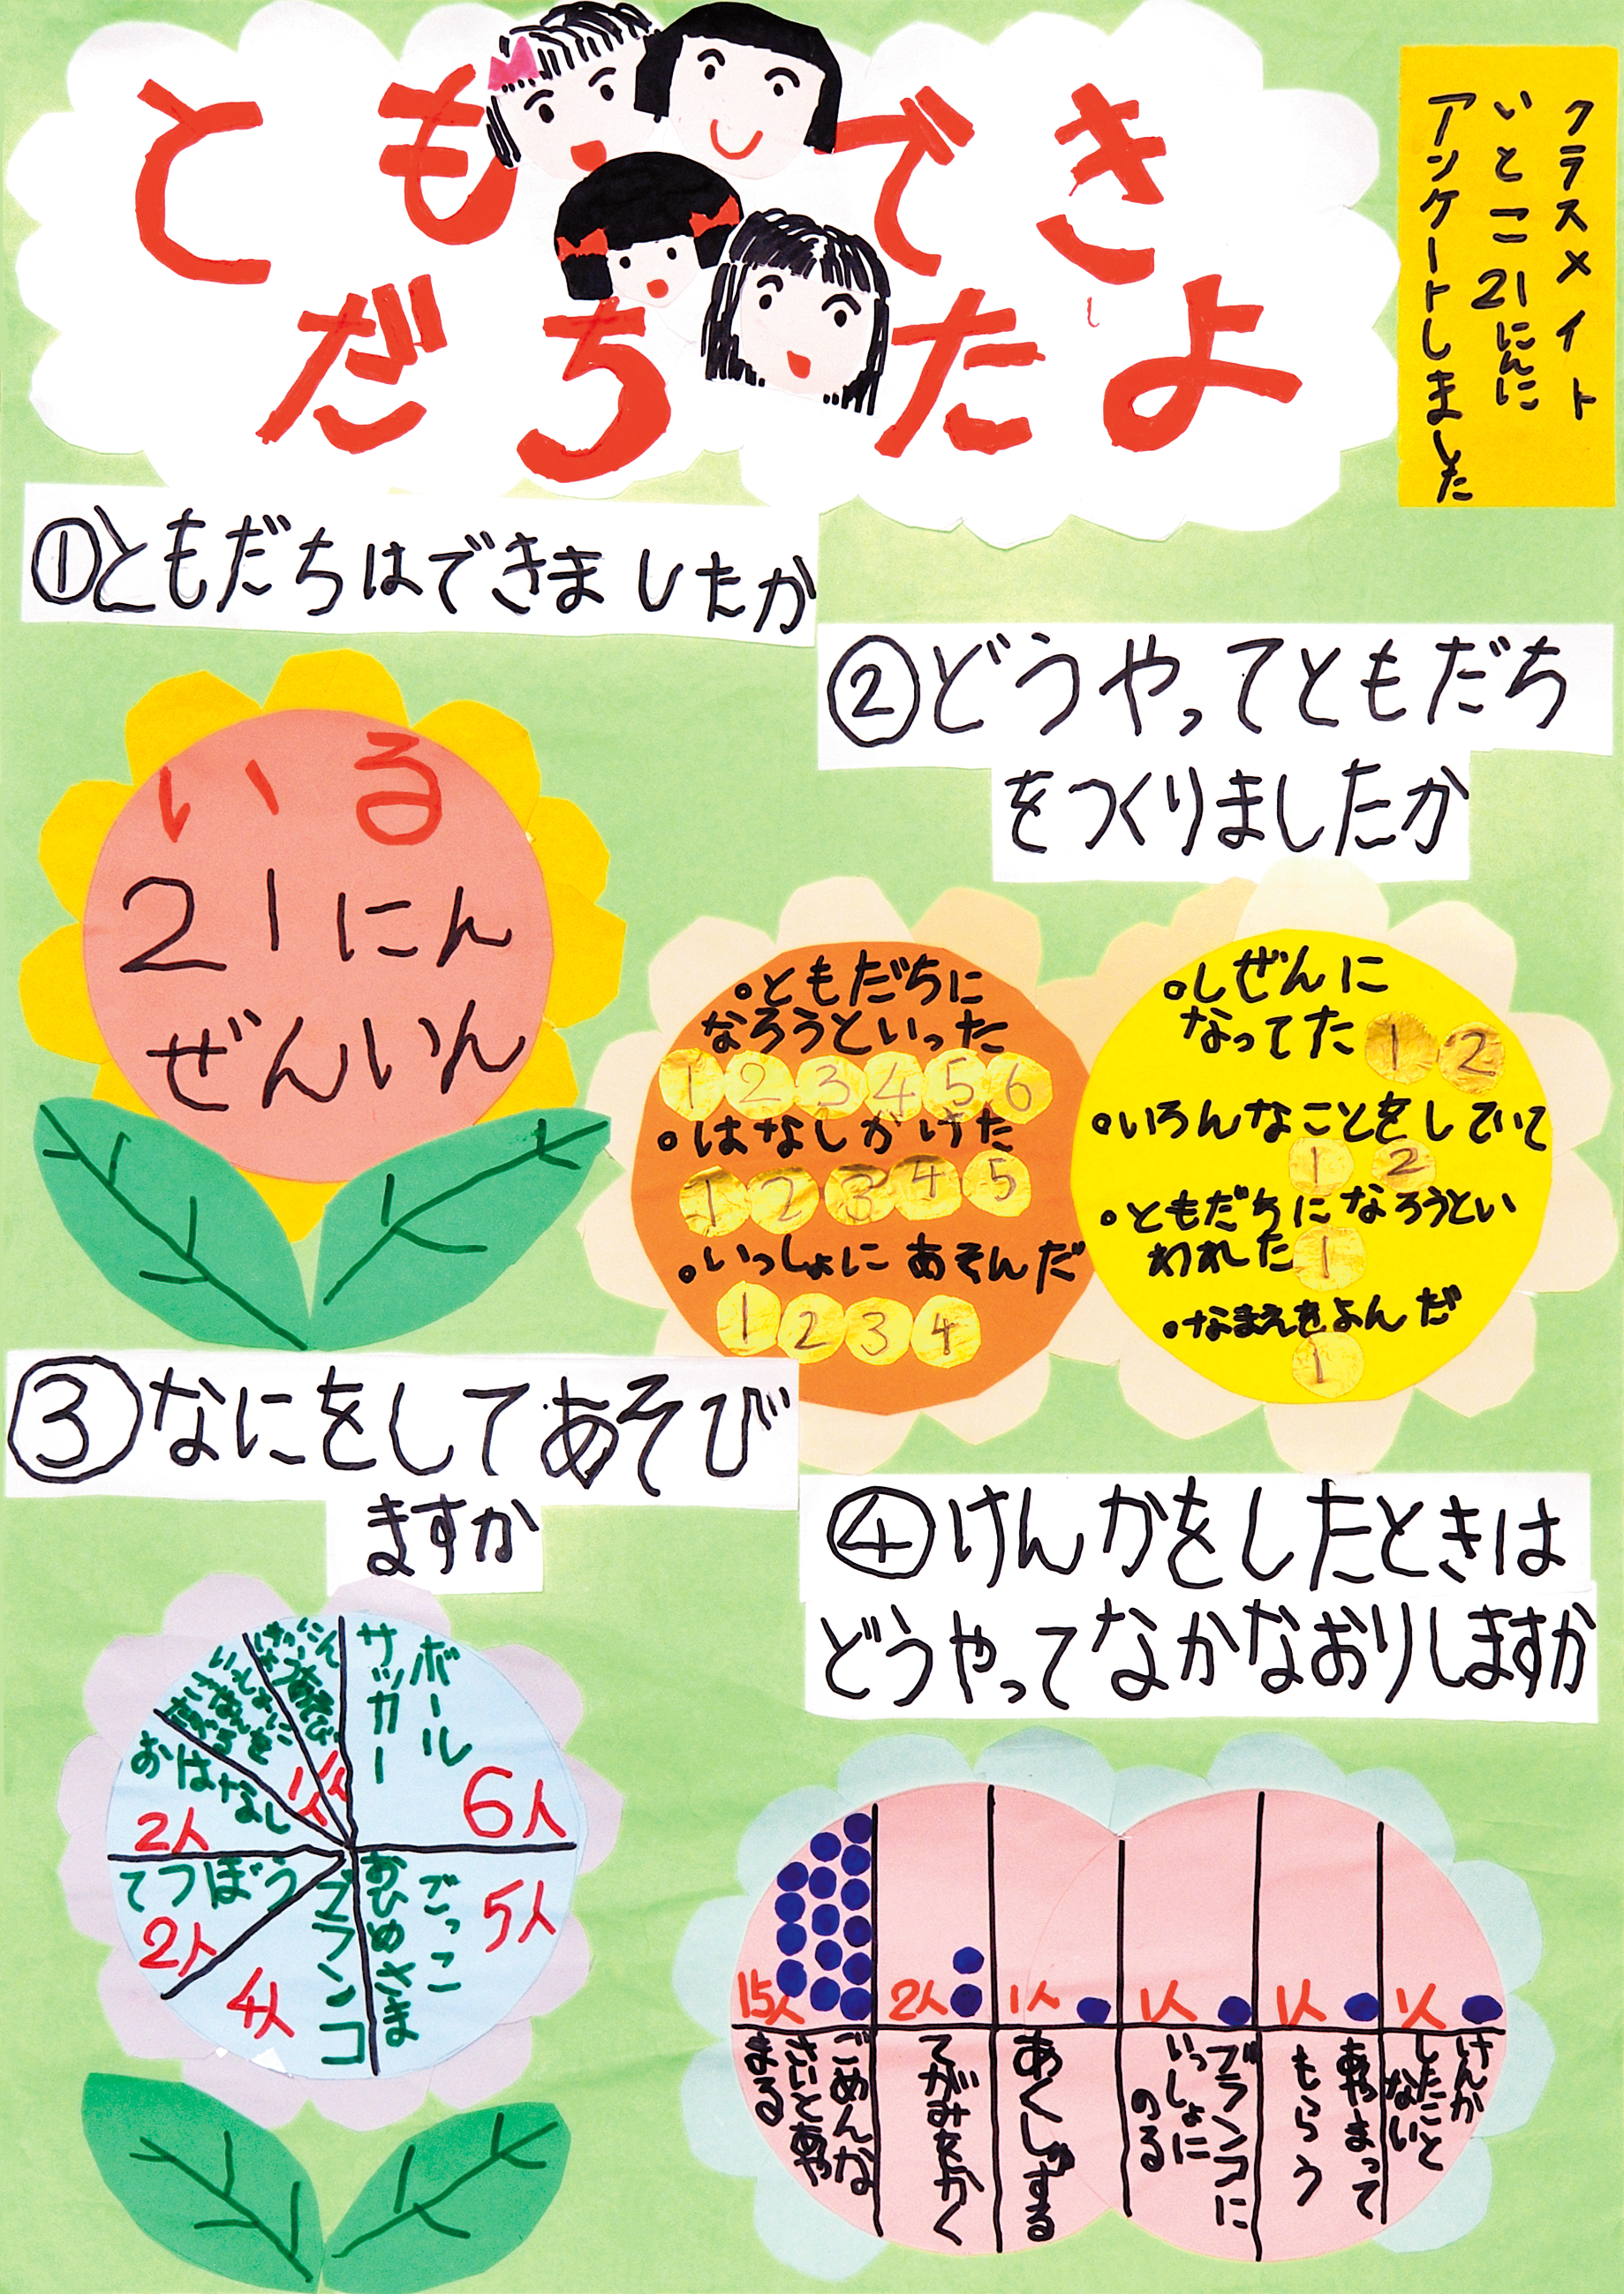 ともだち
できたよ
クラスメイト
いとこ21にんに
アンケートしました
①ともだちはできましたか
いる
21にん
ぜんいん
②どうやってともだち
をつくりましたか
。ともだちに
なろうといった
1 2 3 4 5 6
。はなしかけた
1 2 3 4 5
。いっしょにあそんだ
1 2 3 4
。しぜんに
なってた 1 2
。いろんなことをしていて
1 2
。ともだちになろうとい
われた 1
。なまえをよんだ
1
③なにをしてあそび
ますか
ボール
サッカー
6人
ごっこ
おひめさま
5人
ブランコ
4人
てつぼう
2人
おはなし
2人
いっしょに
ごはんを
たべる
1人
1人
④けんかをしたときは
どうやってなかなおりしますか
15人
ごめんな
さいとあや
まる
2人
てがみをかく
1人
あくしゅする
1人
ブランコに
いっしょに
のる
1人
あやまって
もらう
1人
けんか
したこと
ない